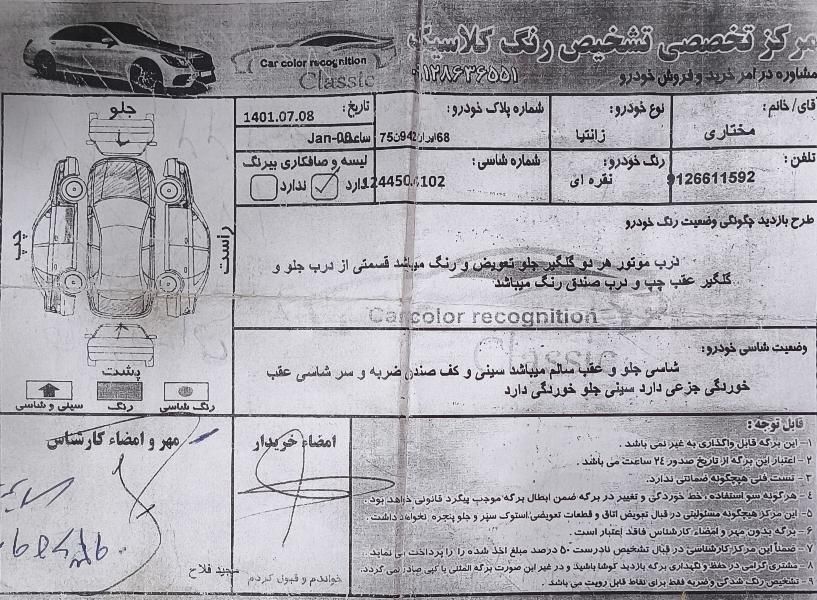 مرکز تخصصی تشخیص رنگ کلاسیک
مشاوره در امر خرید و فروش خودرو
۰۹۱۲۸۶۳۶۵۵۱
Car color recognition
Classic
آقای/ خانم :
مختاری
نوع خودرو:
زانتیا
شماره پلاک خودرو:
68ایران942ن75
تاریخ:
1401.07.08
ساعت:
Jan-00
تلفن :
9126611592
رنگ خودرو:
نقره ای
شماره شاسی:
لیسه و صافکاری بیرنگ
دارد
ندارد
جلو
چپ
راست
پشت
رنگ شاسی
رنگ
سینی و شاسی
طرح بازدید چگونگی وضعیت رنگ خودرو
درب موتور هر دو گلگیر جلو تعویض و رنگ میباشد قسمتی از درب جلو و
گلگیر عقب چپ و درب صندق رنگ میباشد
Car color recognition
Classic
وضعیت شاسی خودرو:
شاسی جلو و عقب سالم میباشد سینی و کف صندق ضربه و سر شاسی عقب
خوردگی جزعی دارد سینی جلو خوردگی دارد
قابل توجه :
۱- این برگه قابل واگذاری به غیر نمی باشد .
۲- اعتبار این برگه از تاریخ صدور ۲۴ ساعت می باشد .
۳- تست فنی هیچگونه ضمانتی ندارد.
۴- هرگونه سوء استفاده ، خط خوردگی و تغییر در برگه ضمن ابطال برگه موجب پیگرد قانونی خواهد بود .
۵- این مرکز هیچگونه مسئولیتی در قبال تعویض اتاق و قطعات تعویضی استوک سپر و جلو پنجره نخواهد داشت .
۶- برگه بدون مهر و امضاء کارشناس فاقد اعتبار است .
۷- ضمناً این مرکز کارشناسی در قبال تشخیص نادرست ۵۰ درصد مبلغ اخذ شده را پرداخت می نماید .
۸- مشتری گرامی در حفظ و نگهداری برگه بازدید کوشا باشید و در غیر این صورت برگه المثنی یا کپی صادر نمی گردد.
۹- تشخیص رنگ شدگی و ضربه فقط برای نقاط قابل رویت می باشد .
امضاء خریدار
خواندم و قبول کردم
مهر و امضاء کارشناس
مجید فلاح